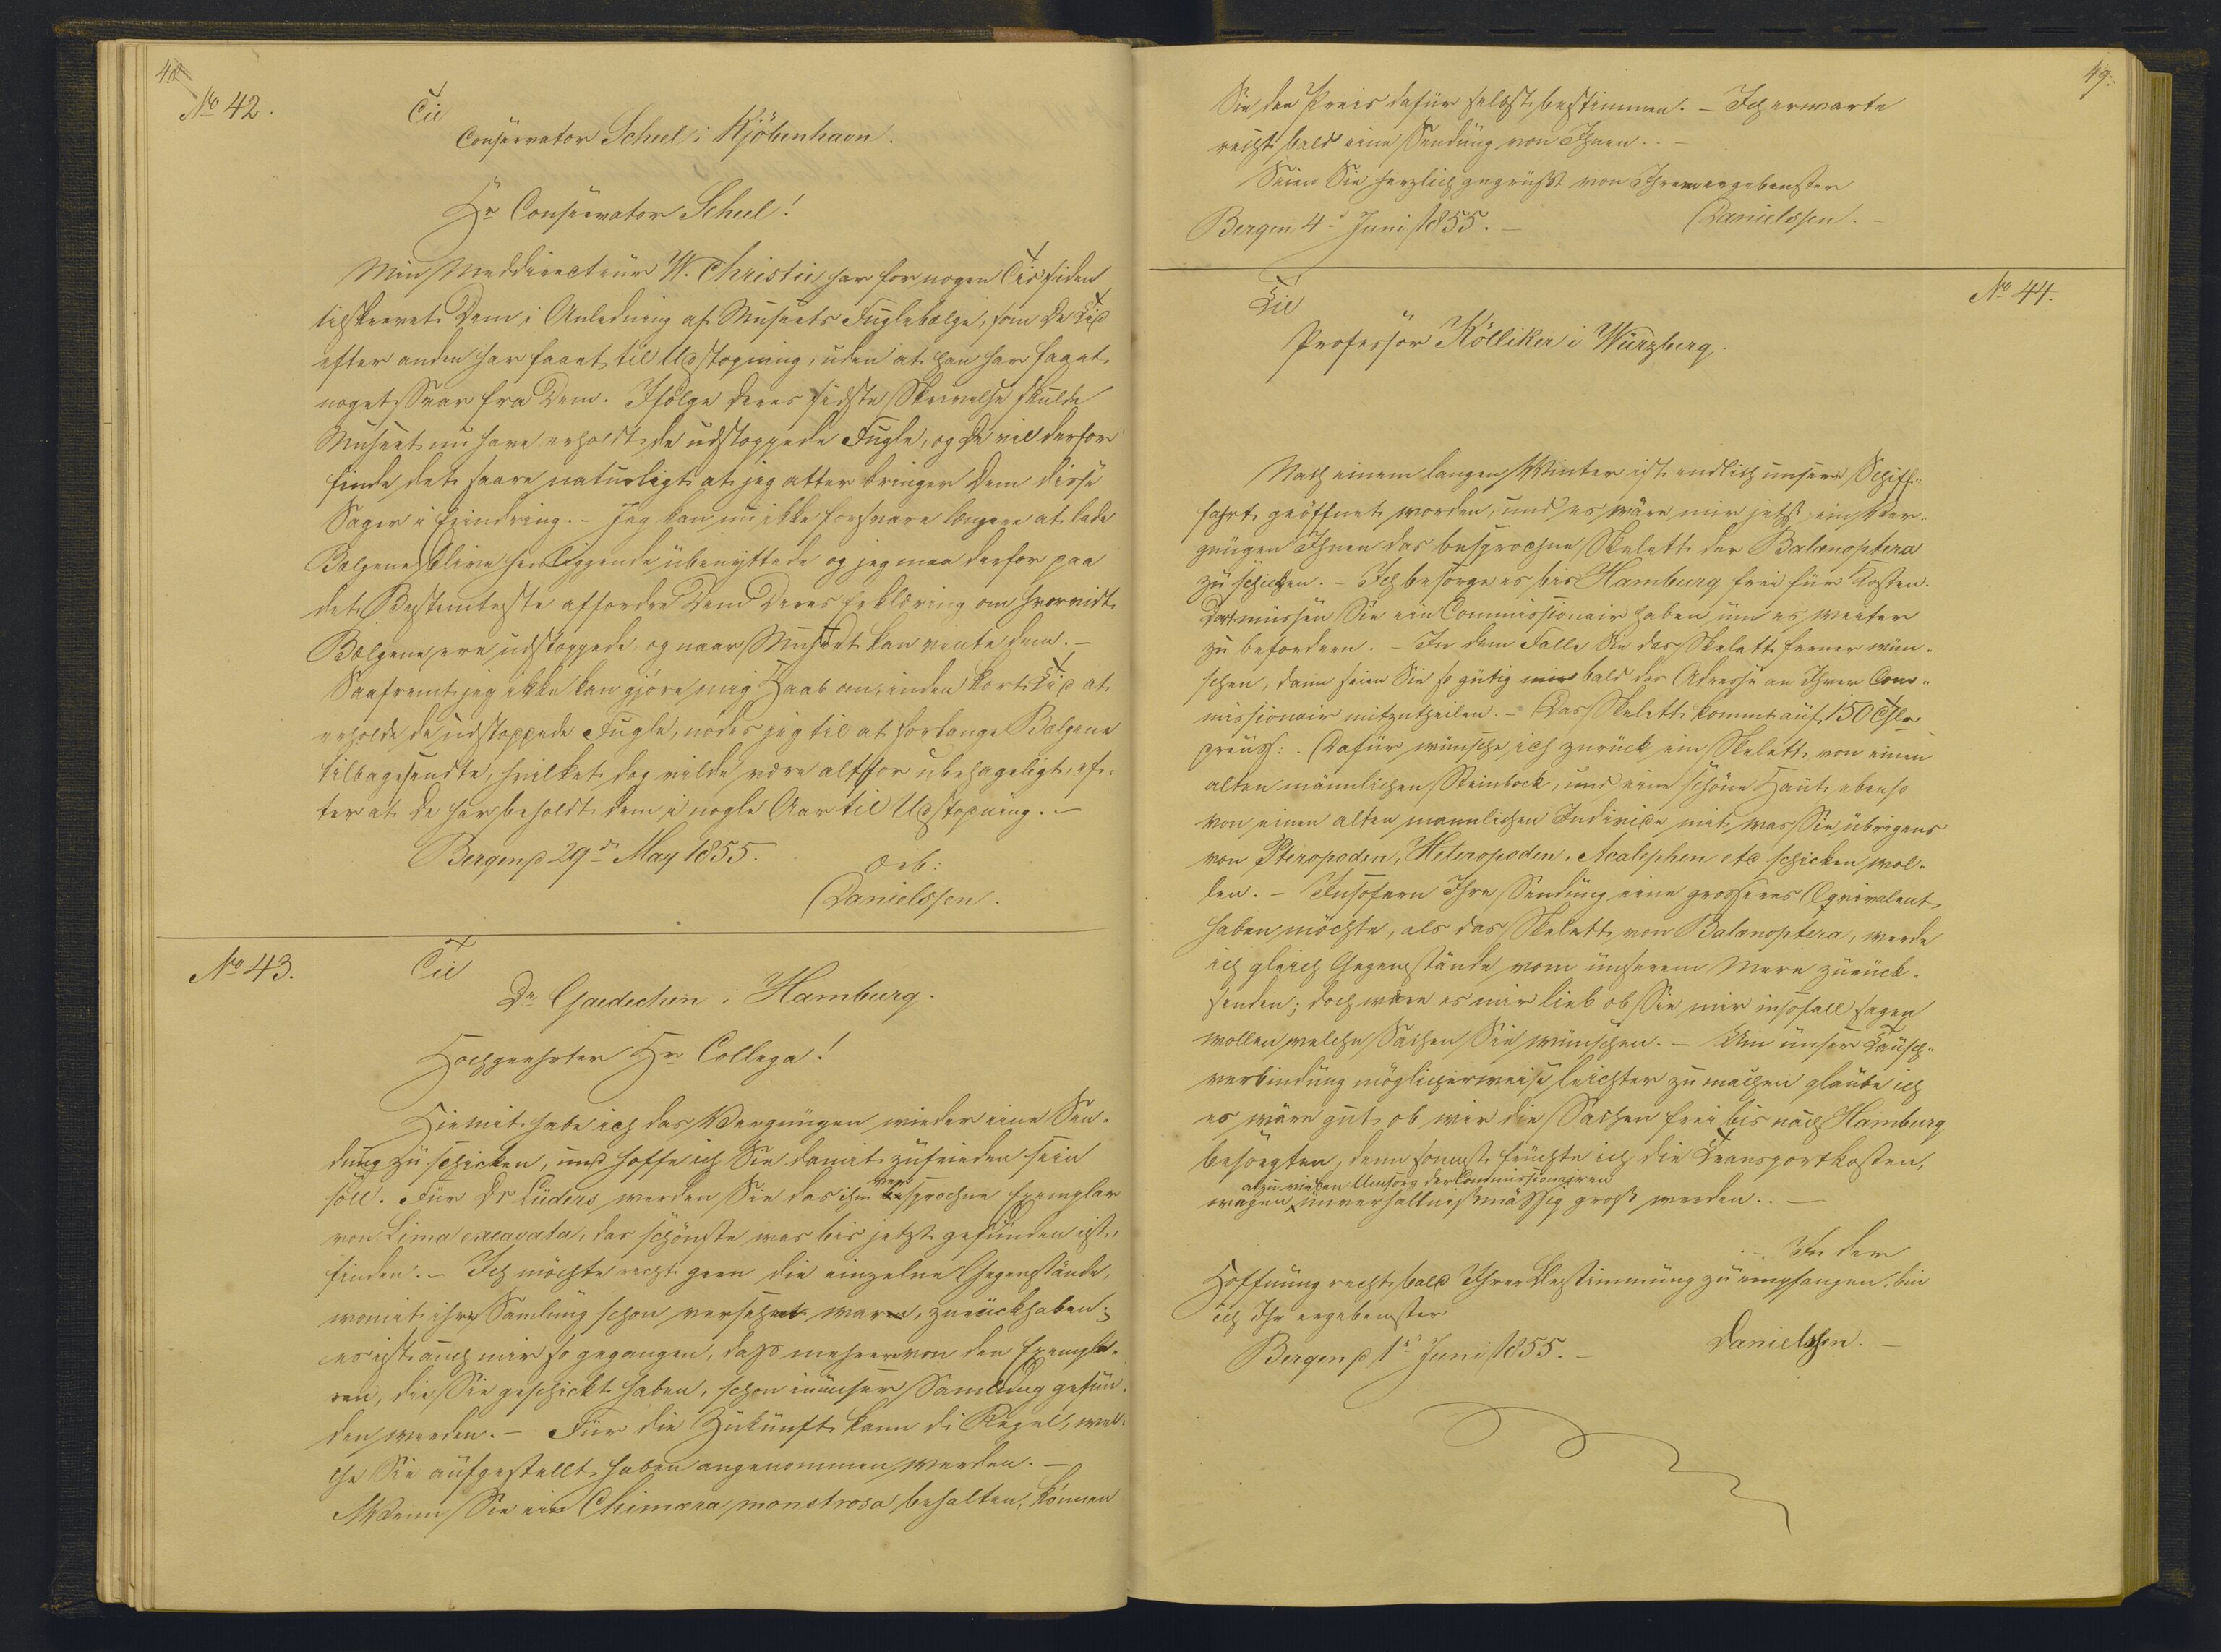 48
No 42.
Til
Conservator Scheel i Kjöbenhavn.
Hr Conservator Scheel!
Min Meddirecteur W. Christie har for nogen Tid siden
tilskrevet Dem i Anledning af Museets Fuglebælge, som De Tid
efter anden har faaet til Udstopning, uden at han har faaet
noget Svar fra Dem. Ifölge Deres sidste Skrivelse skulde
Museet nu have erholdt de udstoppede Fugle, og De vil derfor
finde det saare naturligt at jeg atter bringer Dem disse
Sager i Erindring. - Jeg kan nu ikke forsvare længere at lade
Bælgene blive henliggende ubenyttede og jeg maa derfor paa
det Bestemteste affordre Dem Deres Erklæring om hvorvidt
Bælgene ere udstoppede, og naar Museet kan vente dem. -
Saafremt jeg ikke kan gjøre mig Haab om, inden kort Tid at
erholde de udstoppede Fugle, nödes jeg til at forlange Bælgene
tilbagesendte, hvilket dog vilde være altfor ubehageligt, ef-
ter at De har beholdt dem i nogle Aar til Udstopning. -
Bergen d 29d May 1855.
Ærb:
Danielssen.
No 43.
Til
Dr Gaedechen i Hamburg.
Hochgeehrter Hr Collega!
Hiemit habe ich das Vergnügen wieder eine Sen-
dung zu schicken, und hoffe ich Sie damit zufrieden sein
soll. Für Dr Lüders werden Sie das ihm versprochne Exemplar
von Lima excavata, das schönste was bis jetzt gefunden ist,
finden. - Ich möchte recht gern die einzelne Gegenstände,
womit ihre Samlung schon versehen war, zurückhaben;
es ist auch mir so gegangen, dass mehrere von den Exempla-
ren, die Sie geschickt haben, schon in unser Samlung gefun-
den werden. - Für die Zukunft kann di Regel, wel-
che Sie aufgestellt haben angenommen werden. -
Wenn Sie ein Chimæra monstrosa behalten, können
49.
Sie den Preis dafür selbst bestimmen. - Ich erwarte
recht bald eine Sendung von Ihnen. . -
Seien Sie herzlich gegrüsst von Ihrem ergebenster
Bergen 4d Juni 1855. -
Danielssen. -
No 44.
Til
Professor Kölliker i Würzberg.
Nach einem langen Winter ist endlich unsere Schiff-
fahrt geöffnet worden, und es wäre mir jetzt ein Ver-
gnügen Ihnen das besprochne Skelett der Balænoptera
zu schicken. - Ich besorge es bis Hamburg frei für Kosten.
Dort müssen Sie ein Commissionair haben um es weiter
zu befordern. - In dem Falle Sie das Skelett ferner wün-
schen, dann seien Sie so gütig mir bald das Adresse an Ihrer Com-
missionair mitzutheilen. - Das Skelett kommt auf 150 Thlr
preuss: . Dafür wünsche ich zurück ein Skelett von einen
alten männlichen Steinbock, und eine schöne Haut ebenso
von einen alten mannlichen Individ mit was Sie übrigens
von Pteropoden, Heteropoden, Acalephen etc schicken wol-
len. - Insofern Ihre Sendung eine grosseres Eqvivalent
haben möchte, als das Skelett von Balænoptera, werde
ich gleich Gegenstände vom unserem Mere zurück-
senden; doch wäre es mir lieb ob Sie mir insofall sagen
wollen welche Sachen Sie wünschen. - Um unser Tausch-
verbindung möglicherweise leichter zu machen glaube ich
es wäre gut, ob wir die Sachen frei bis nach Hamburg
besorgten, denn sonnst fürchte ich die Transportkosten,
wegen alzu vielen Umsorg der Commissionairen
unverhaltnissmässig gross werden. . -
In der
Hoffnung recht bald Ihrer Bestimmung zu empfangen, bin
ich Ihr ergebenster
Bergen d 1d Juni 1855. -
Danielssen. -